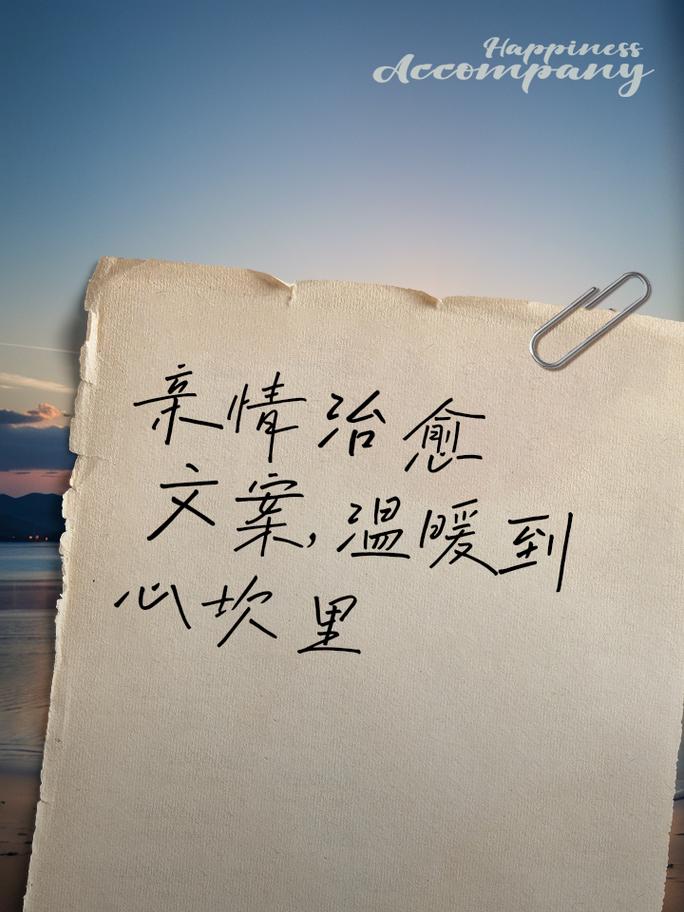 Happiness
Accompany
亲情治愈
文案,温暖到
心坎里